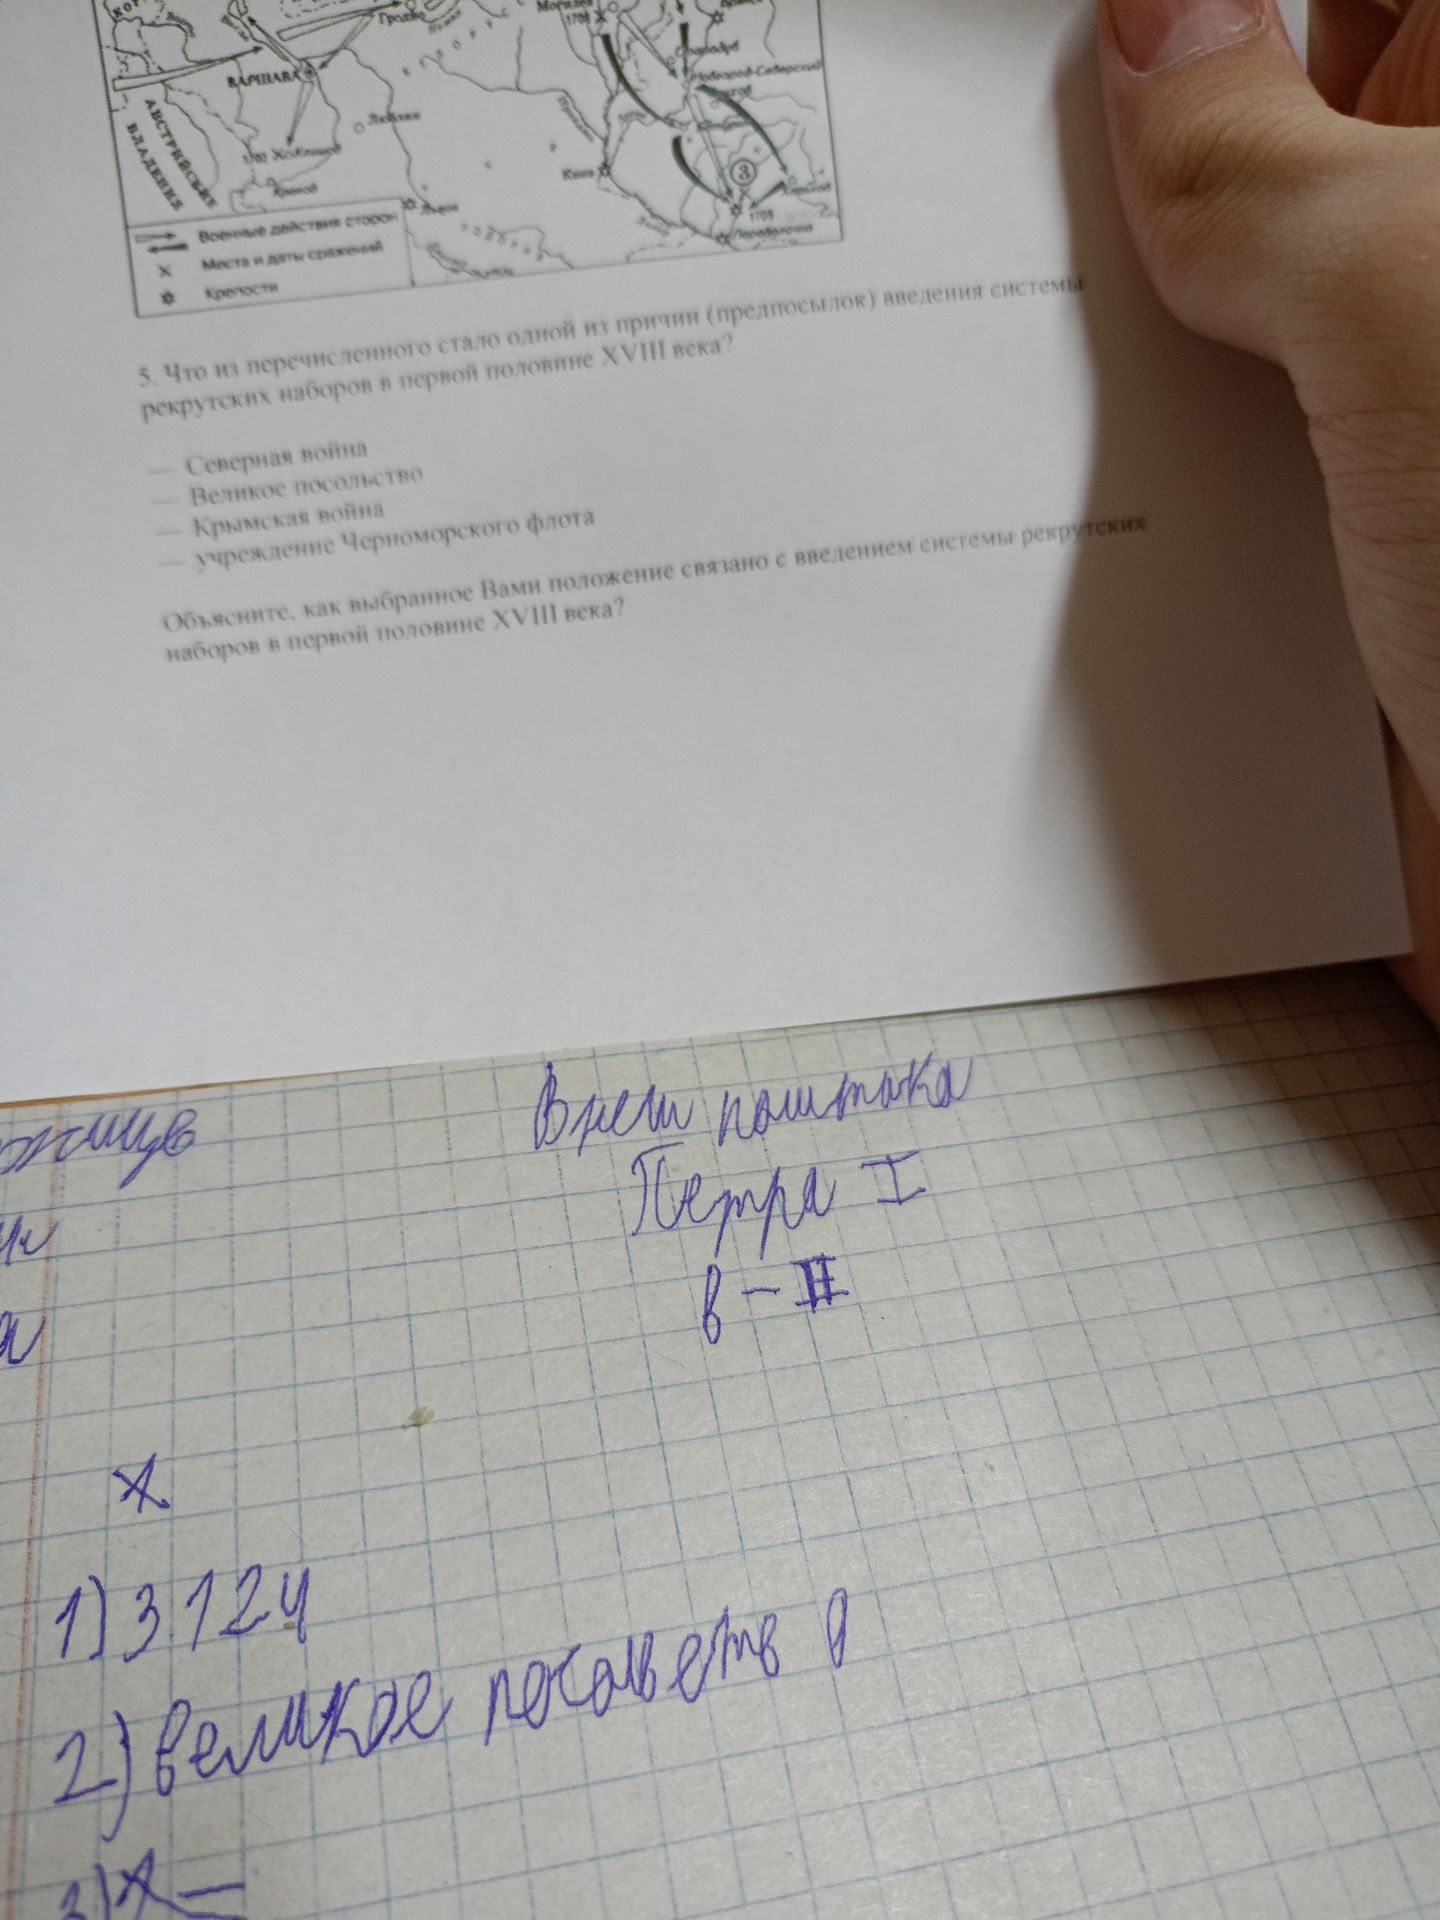 Гродно
Могилев
1708
Стародуб
Новгород-Северский
ВАРШАВА
АВСТРИЙСКИЕ
ВЛАДЕНИЯ
Люблин
1702
Краков
Киев
3
Харьков
1709
Львов
Переволочна
Военные действия сторон
Места и даты сражений
Крепости
5. Что из перечисленного стало одной из причин (предпосылок) введения системы
рекрутских наборов в первой половине XVIII века?
— Северная война
— Великое посольство
— Крымская война
— учреждение Черноморского флота
Объясните, как выбранное Вами положение связано с введением системы рекрутских
наборов в первой половине XVIII века?
Внеш
Петра I
в – II
x
1) 3124
2) великое
3) x –